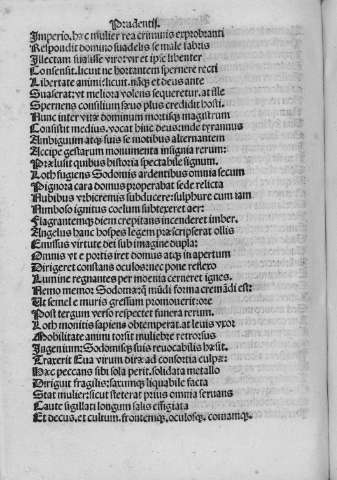 Prudentii.
Imperio. hæc mulier rea criminis exprobranti
Respondit domino suadelis se male fabris
Illectam suasisse viro: vir et ipse libenter
Consensit. licuit ne hortantem spernere recti
Libertate animi: licuit. nāqȝ et deus ante
Suaserat: vt meliora volens sequeretur. at ille
Spernens consilium sæuo plus credidit hosti.
Nunc inter vitæ dominum mortisqȝ magistrum
Consistit medius. vocat hinc deus: inde tyrannus
Ambiguum atqȝ suis se motibus alternantem
Accipe gestarum monumenta insignia rerum:
Prælusit quibus historia spectabile signum.
Loth fugiens Sodomis ardentibus omnia secum
Pignora cara domus properabat sede relicta
Nubibus vrbicremis subducere: sulphure cum iam
Nimboso ignitus coelum subtexeret aer:
Flagrantemqȝ diem crepitans incenderet imber.
Angelus hanc hospes legem præscripserat ollis
Emissus virtute dei sub imagine dupla:
Omnis vt e portis iret domus atqȝ in apertum
Dirigeret constans oculos: nec pone reflexo
Lumine regnantes per moenia cerneret ignes.
Nemo memor Sodomæ: qȝ mūdi forma cremādi est:
Ut semel e muris gressum promouerit: ore
Post tergum verso respectet funera rerum.
Loth monitis sapiens obtemperat. at leuis vxor
Mobilitate animi torsit muliebre retrorsus
Ingenium: Sodomisqȝ suis reuocabilis hæsit.
Traxerat Eua virum diræ ad consortia culpæ:
Hæc peccans sibi sola perit. solidata metallo
Diriguit fragilis: saxumqȝ liquabile facta
Stat mulier: sicut steterat prius omnia seruans
Caute sigillati longum salis effigiata
Et decus. et cultum. frontemqȝ. oculosqȝ. comamqȝ.